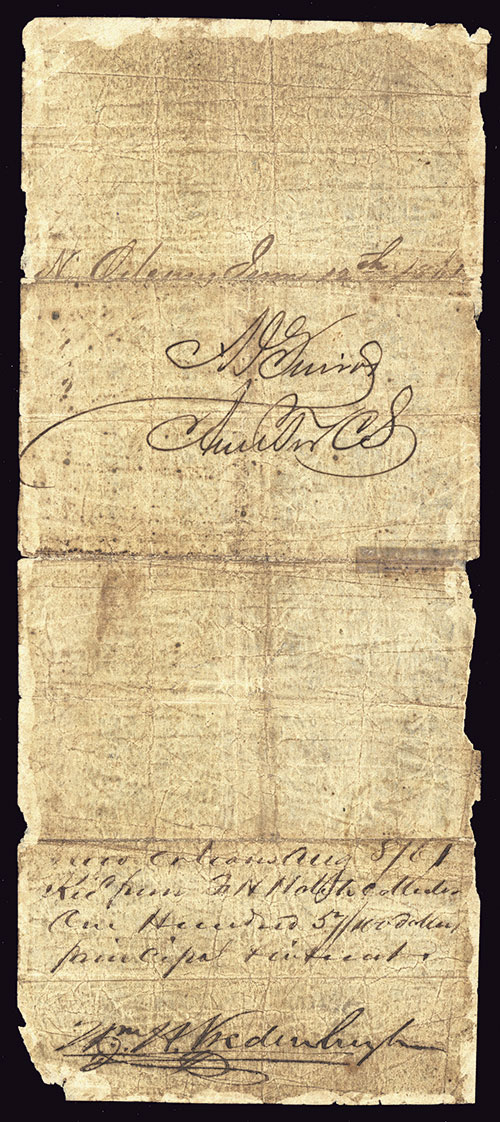 N. Orleans June 12th 1861
A J Guirot
new orleans Aug 8/61
Recd from F H Hatch Collector
One Hundred 57/100 dollars
principal & interest
Wm. H. Vredenburgh